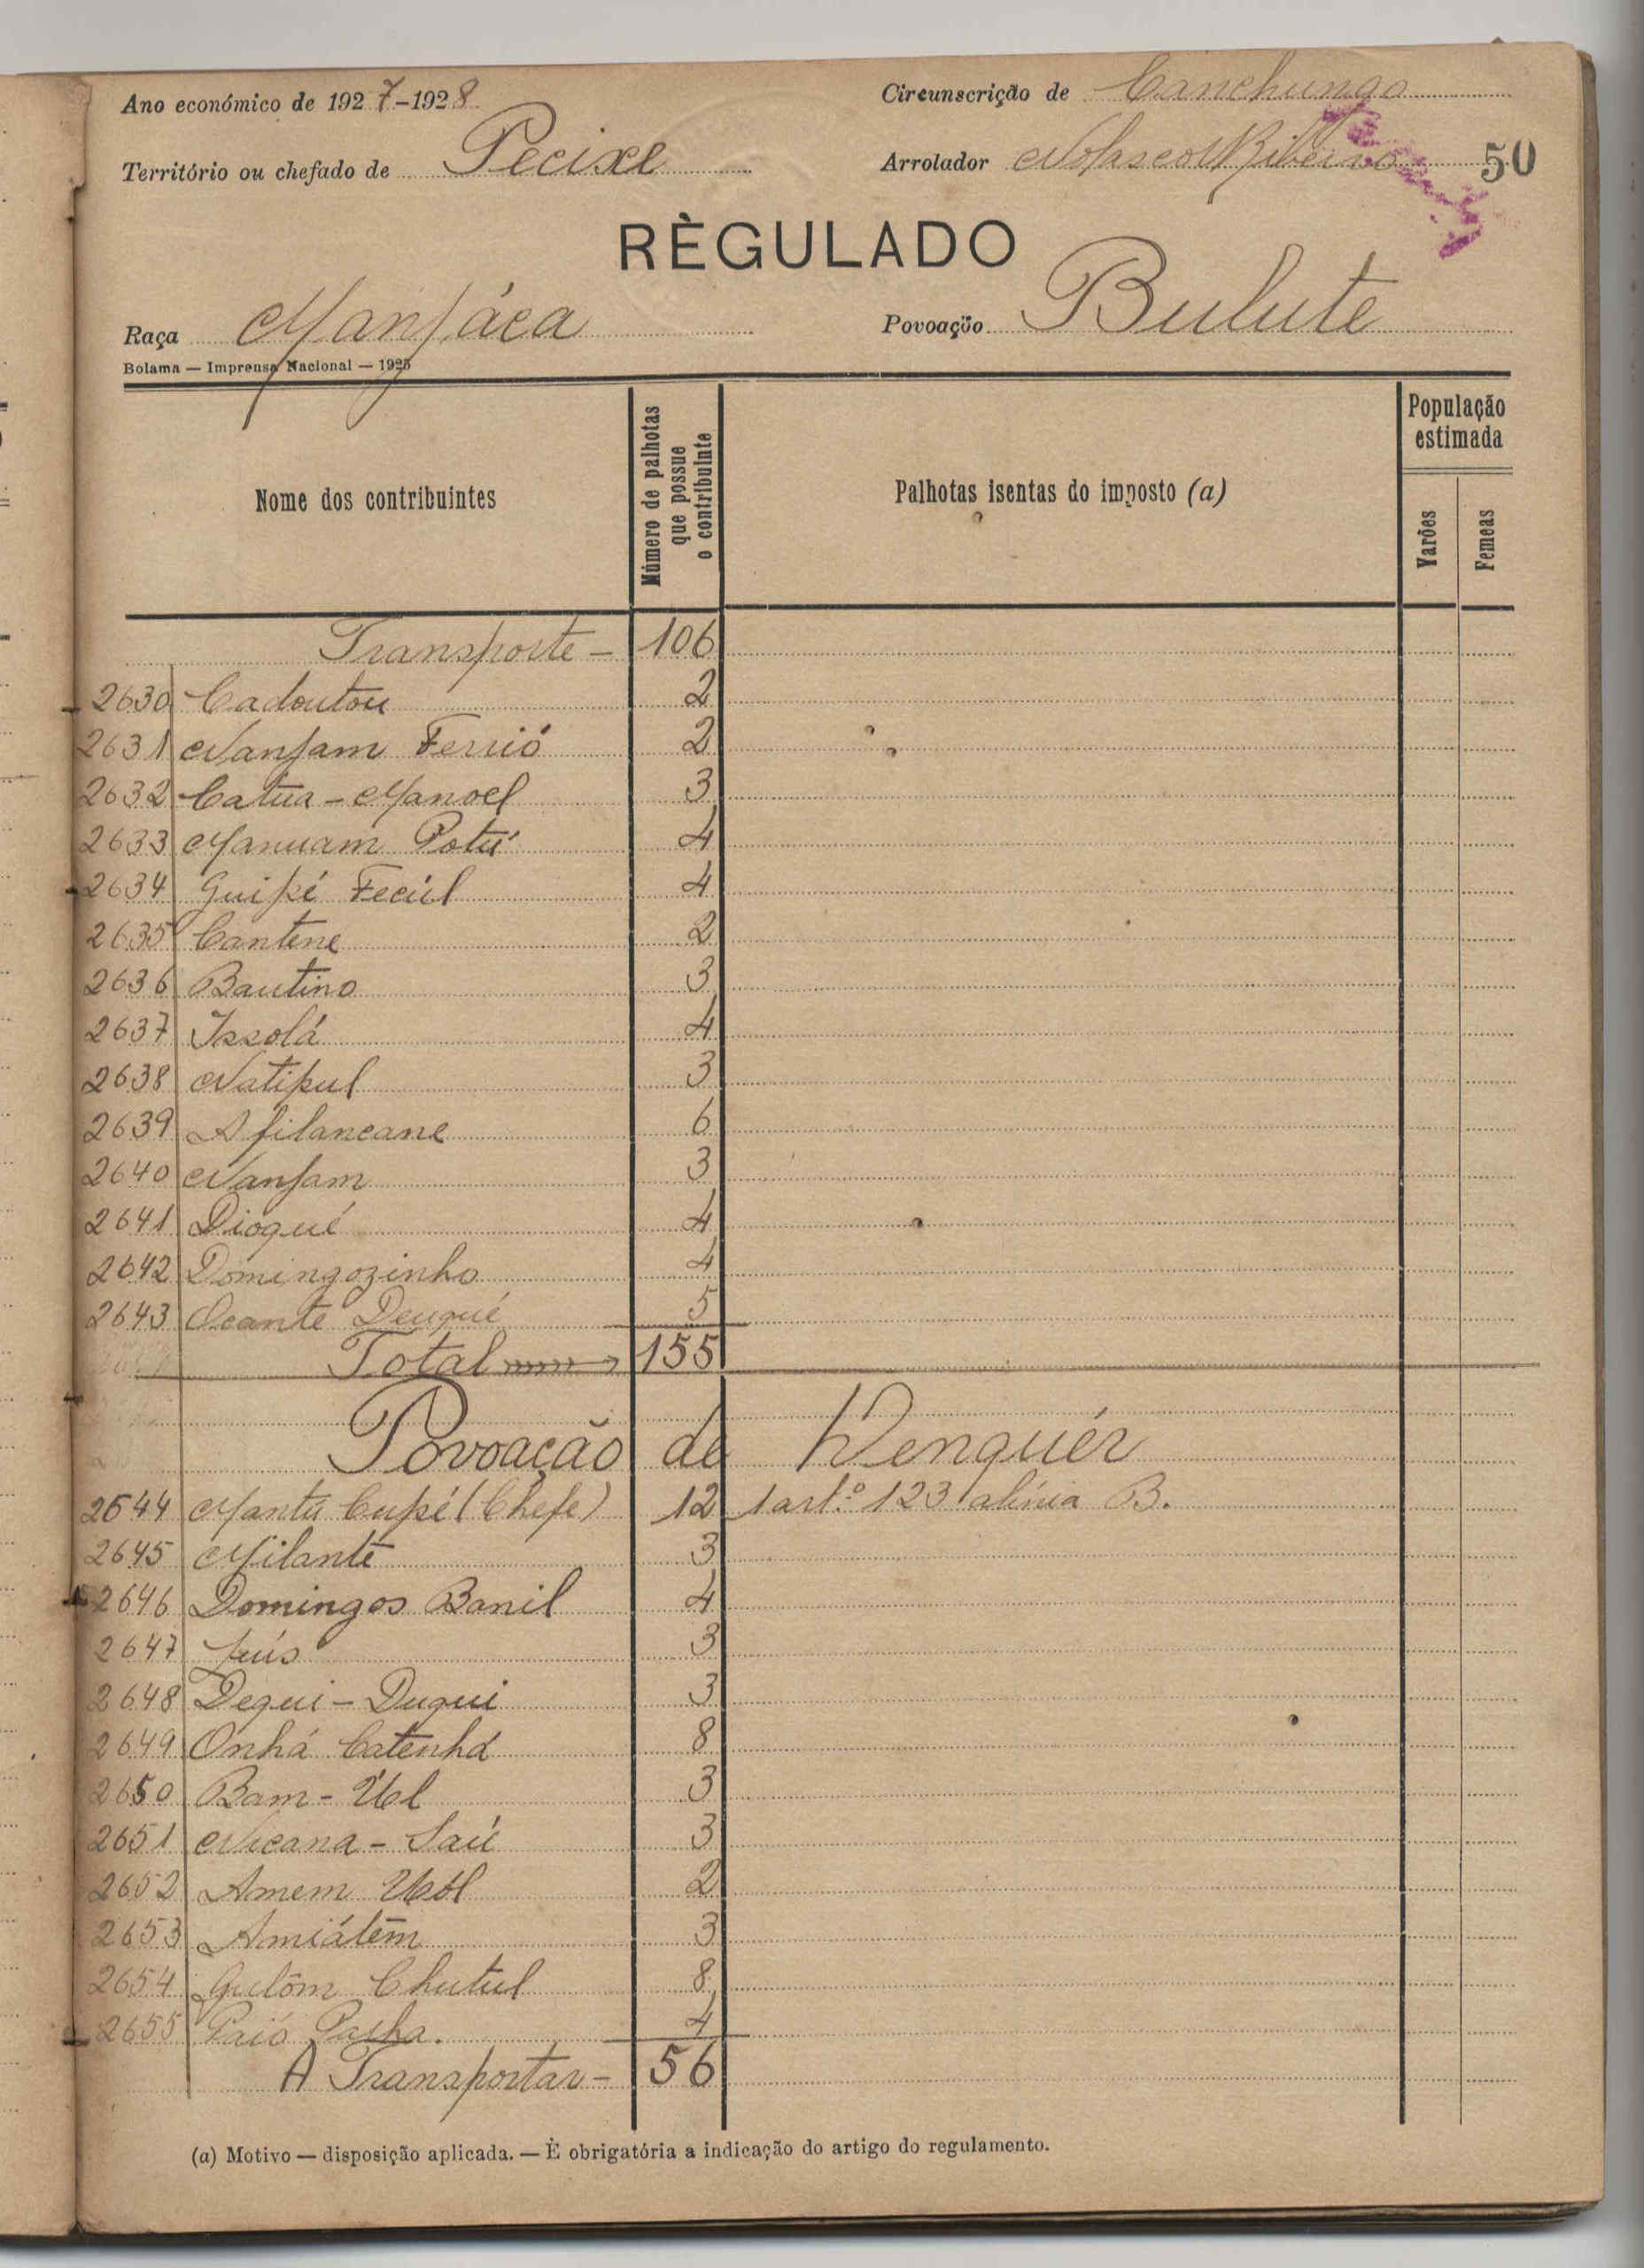 Ano económico de 1927-1928
Circunscrição de Canchungo
Território ou chefado de Pecixe
Arrolador Ribeiro
50
RÈGULADO
Raça Manjáca
Povoação Bulute
Bolama — Imprensa Nacional — 1925
Nome dos contribuintes
Número de palhotas que possue o contribuinte
Palhotas isentas do imposto (a)
População estimada
Varões
Femeas
Transporte - 106
2630 Cadoutou 2
2631 Nanjam Ferrió 2
2632 Catúa - Manoel 3
2633 Manuam Potú 4
2634 Guipé Fecúl 4
2635 Cantene 2
2636 Bautino 3
2637 Issolá 4
2638 Natipul 3
2639 Afilancane 6
2640 Nanjam 3
2641 Dioqué 4
2642 Domingozinho 4
2643 Ocante Deuqué 5
Total 155
Povoação de Wenquér
2644 Mantú Cupé (Chefe) 12 1 artº 123 alinia B.
2645 Milante 3
2646 Domingos Banil 4
2647 3
2648 Dequi - Duqui 3
2649 Onhá Catenhá 8
2650 Bam - Ubl 3
2651 Nicana - Saú 3
2652 Amem 2
2653 Amiátem 3
2654 Gulôm Chutul 8
2655 Paió 4
A Transportar - 56
(a) Motivo — disposição aplicada. — È obrigatória a indicação do artigo do regulamento.